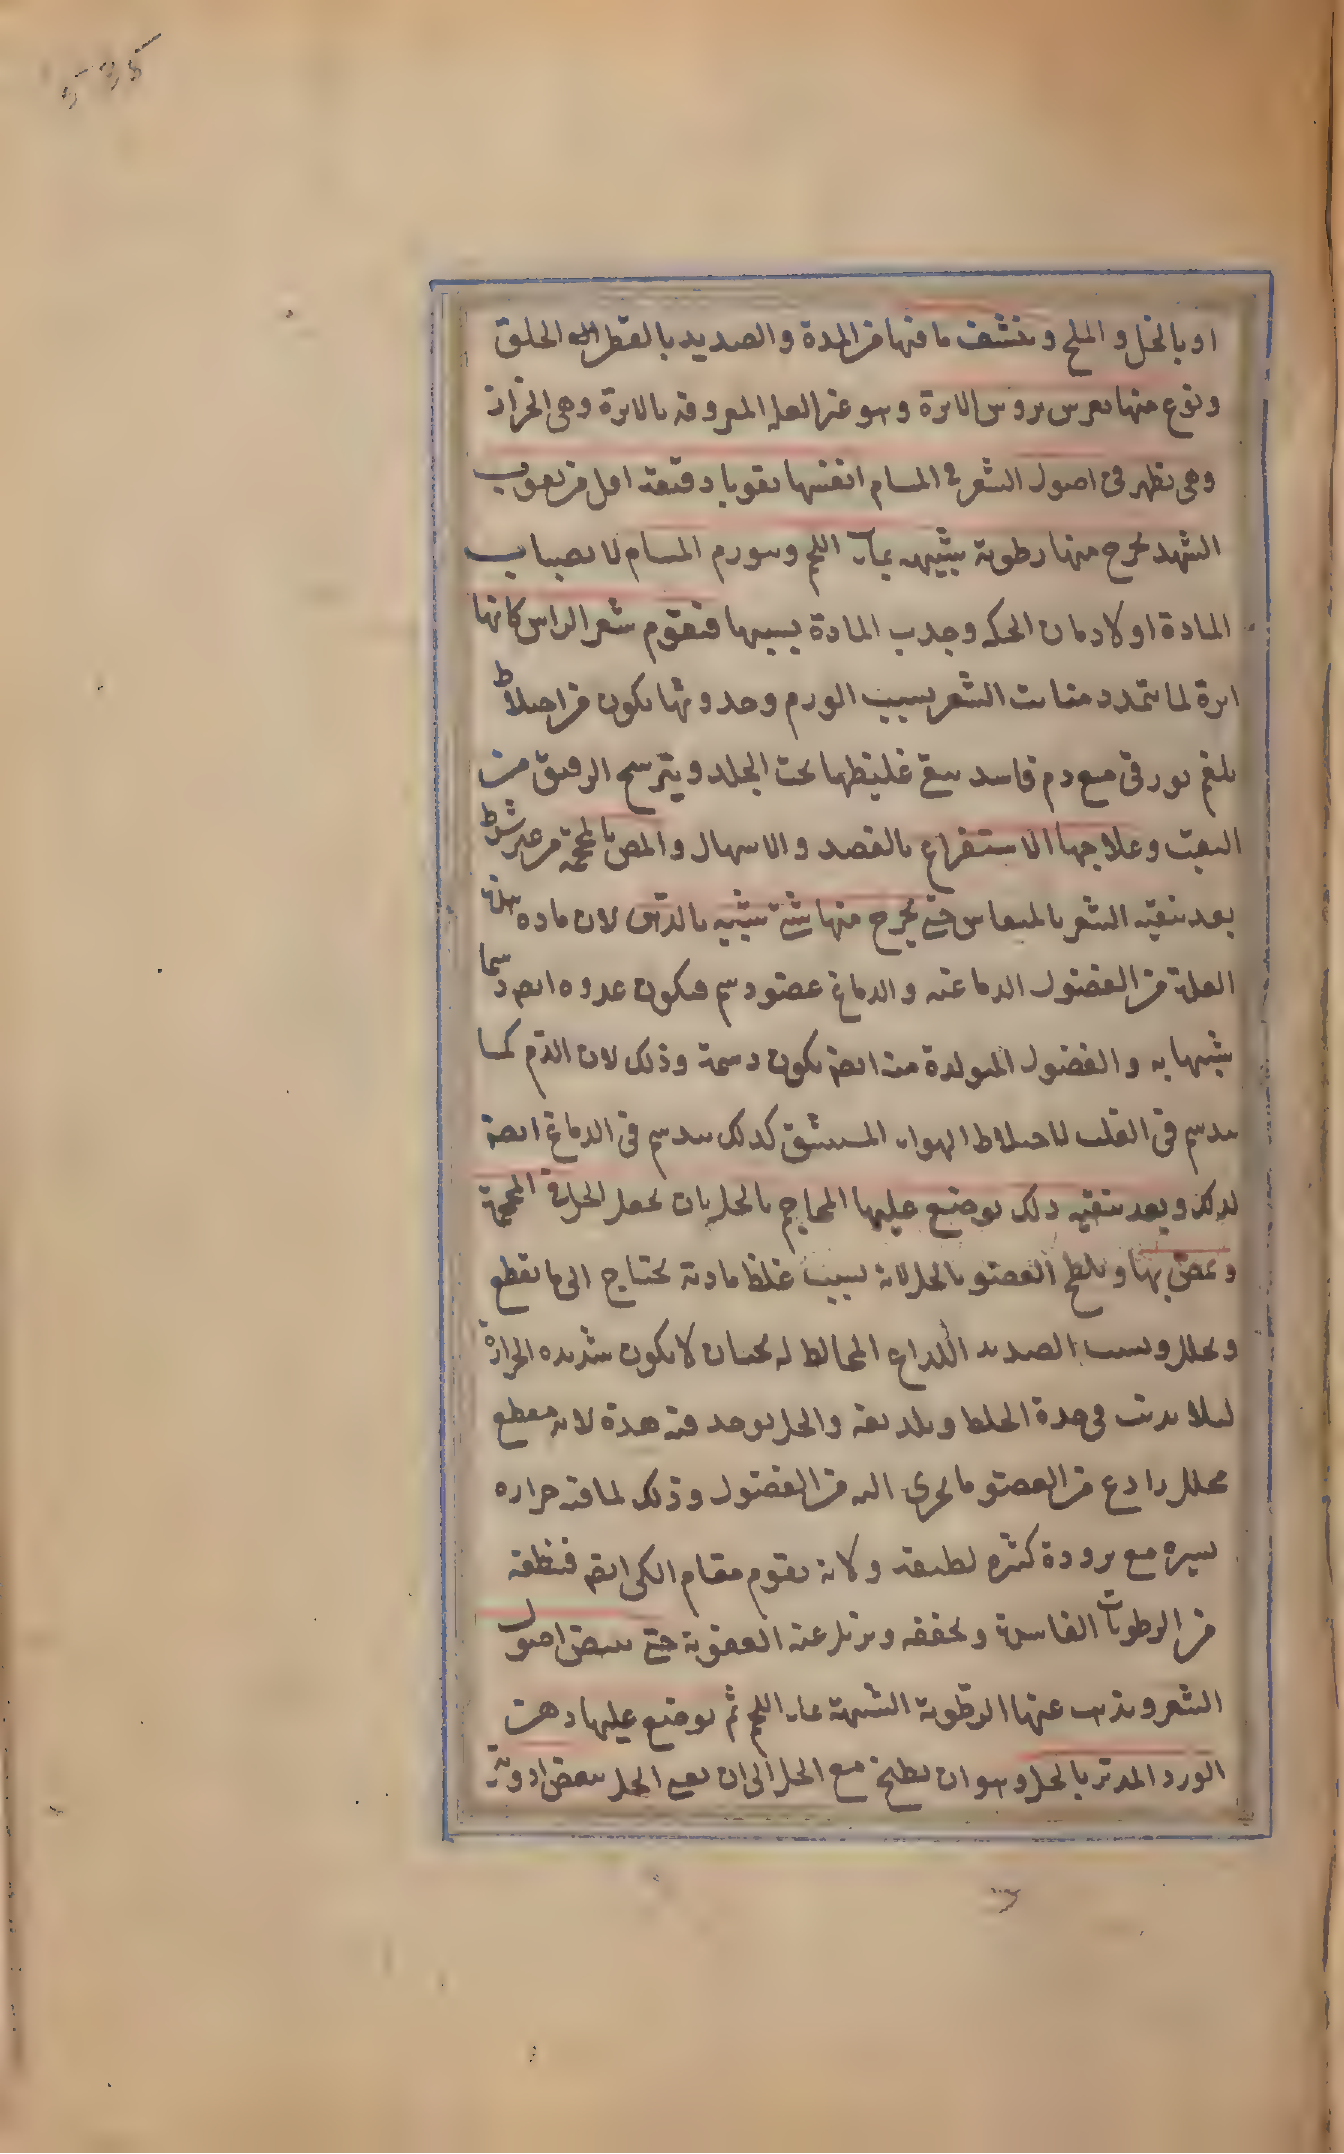 او بالخل و الملح و ينشف ما فيها من المدة و الصديد بالقطن الخلق
و نوع منها يعرس بروس الابرة و هو غير العله المعروفه بالابرة و هى الحزاز
و هى تظهر فى اصول الشعر فى المسام انفسها بقوبا دقيقة اقل من ثقوب
الشهد يخرج منها رطوبة شبيهه بماء اللحم و يتورم المسام لانصباب
المادة او لادمان الحكه و جذب المادة بسببها فيقوم شعر الراس كانها
ابرة لما يتمدد منابت الشعر بسبب الورم و حدوثها يكون من اختلاط
بلغم بورقى مع دم فاسد يبقى غليظها تحت الجلد و يترشح الرقيق من
الثقب و علاجها الاستفراغ بالفصد و الاسهال و المص بالمحجمة من غير شرط
بعد تنقيه الشعر بالمنقاش حتى يخرج منها شئ شبيه بالدهن لان ماده هذه
العلة من الفضول الدماغيه و الدماغ عضو دسم فيكون غذوه ايضا دسما
شبيها به و الفضول المتولدة منه ايضا يكون دسمة و ذلك لان الدم كما
يدسم فى القلب لاختلاط الهواء المستنشق كذلك يدسم فى الدماغ ايضا
لذلك و بعد تنقيه ذلك يوضع عليها المحاجم بالخل بان يجعل الخل فى المحجمة
و يمص بها و يلطخ العضو بالخل لانه بسبب غلظ مادته يحتاج الى ما يقطع
و يحلل و بسبب الصديد اللذاع المخالط له يجب ان لا يكون شديده الحرارة
ليلا يزيد فى حدة الخلط و يلذيعه و الخل يوجد فيه هذة لانه مقطع
محلل رادع من العضو ما يجرى اليه من الفضول و ذلك لما فيه حراره
يسيره مع برودة كثيره لطيفة و لانه يقوم مقام الكى ايضا فينظفه
من الرطوبات الفاسدة و يجففه و يزيل عنه العفونة حتى يبيض اصول
الشعر و يذهب عنها الرطوبة الشبيهة بماء اللحم ثم يوضع عليها دهن
الورد المدبر بالخل و هو ان يطبخ مع الخل الى ان يفنى الخل ببعض ادوية